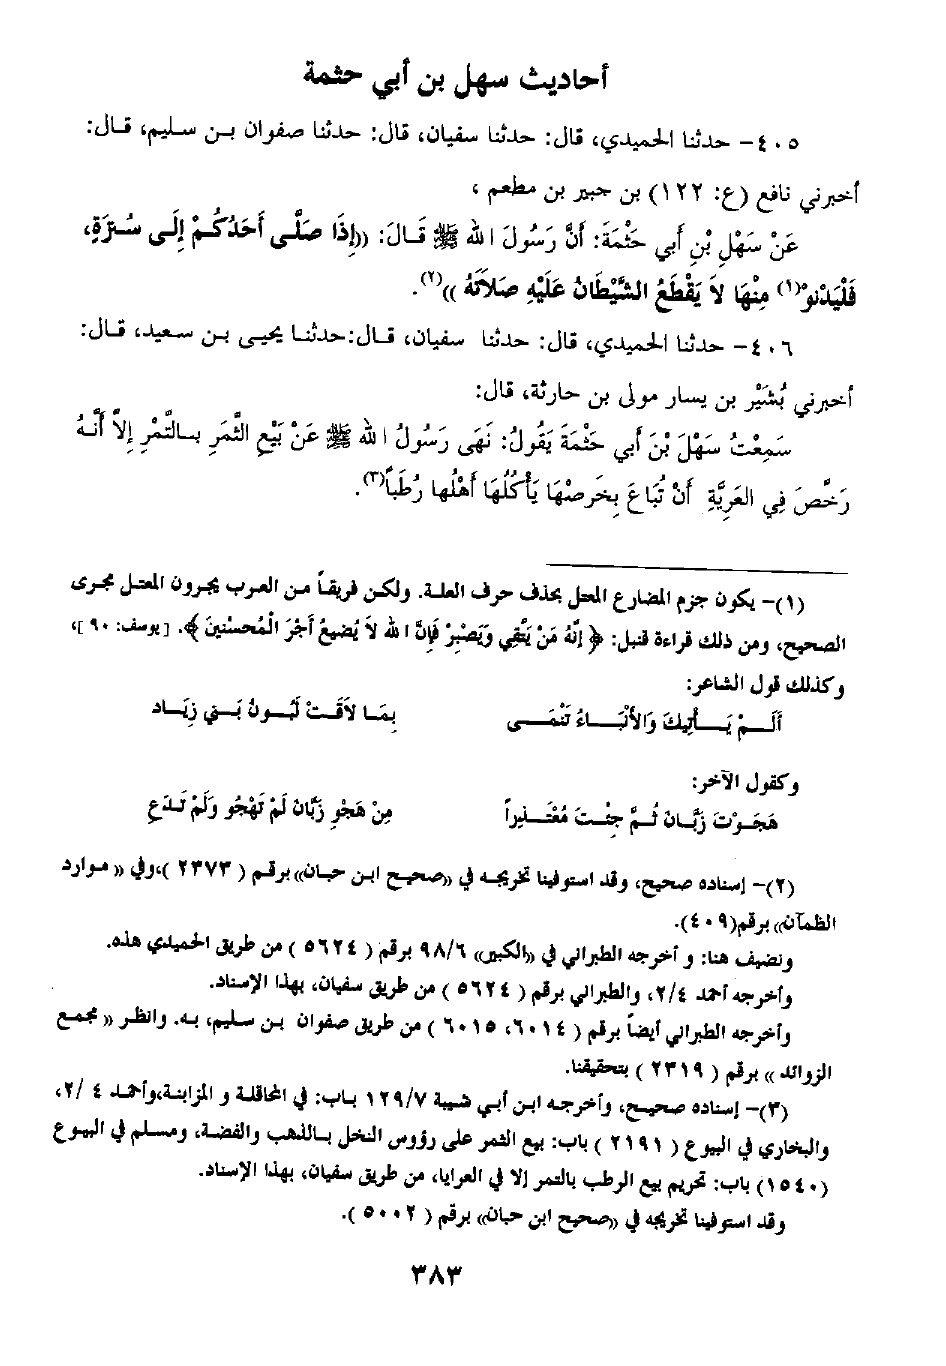 أحاديث سهل بن أبي حثمة
٤٠٥- حدثنا الحميدي، قال: حدثنا سفيان، قال: حدثنا صفوان بن سليم، قال:
أخبرني نافع (ع: ١٢٢) بن جبير بن مطعم ،
عَنْ سَهْلِ بْنِ أبي حَثْمَةَ: أنَّ رَسُولَ الله ﷺ قَالَ: ((إِذَا صَلَّى أَحَدُكُمْ إِلَى سُتْرَةٍ،
فَلْيَدْنُوْ(١) مِنْهَا لاَ يَقْطَعُ الشَّيْطَانُ عَلَيْهِ صَلاَتَهُ ))(٢).
٤٠٦- حدثنا الحميدي، قال: حدثنا سفيان، قال:حدثنا يحيى بن سعيد، قال:
أخبرني بُشَيْر بن يسار مولى بن حارثة، قال:
سَمِعْتُ سَهْلَ بْنَ أبي حَثْمَةَ يَقُولُ: نَهَى رَسُولُ الله ﷺ عَنْ بَيْعِ الثَّمَرِ بِالتَّمْرِ إلاَّ أَنَّهُ
رَخَّصَ فِي العَرِيَّةِ أَنْ تُبَاعَ بِخَرصِهَا يَأْكُلُهَا أَهْلُها رُطَباً(٣).
(١)- يكون جزم المضارع المعتل بحذف حرف العلة. ولكن فريقاً من العرب يجرون المعتل مجرى
الصحيح، ومن ذلك قراءة قنبل: ﴿ إنَّهُ مَنْ يَتَّقِي وَيَصْبِرْ فَإنَّ الله لاَ يُضيعُ أجْرَ الْمُحسْنينَ ﴾. [يوسف: ٩٠]،
وكذلك قول الشاعر:
أَلَمْ يَأتِيكَ وَالأنْبَاءُ تَنْمَى بِمَا لاَقَتْ لَبُونُ بَني زِيَاد
وكقول الآخر:
هَجَوْتَ زَبَّانَ ثُمَّ جِئْتَ مُعْتَذِراً مِنْ هَجْوِ زَبَّانَ لَمْ تَهْجُو وَلَمْ تَدَعِ
(٢)- إسناده صحيح، وقد استوفينا تخريجه في ((صحيح ابن حبان)) برقم ( ٢٣٧٣ )،وفي (( موارد
الظمآن)) برقم(٤٠٩).
ونضيف هنا: و أخرجه الطبراني في ((الكبير)) ٩٨/٦ برقم ( ٥٦٢٤ ) من طريق الحميدي هذه.
وأخرجه أحمد ٢/٤، والطبراني برقم ( ٥٦٢٤ ) من طريق سفيان، بهذا الإسناد.
وأخرجه الطبراني أيضاً برقم ( ٦٠١٤، ٦٠١٥ ) من طريق صفوان بن سليم، به. وانظر (( مجمع
الزوائد )) برقم ( ٢٣١٩ ) بتحقيقنا.
(٣)- إسناده صحيح، وأخرجه ابن أبي شيبة ١٢٩/٧ باب: في المحاقلة و المزابنة،وأحمد ٤ /٢،
والبخاري في البيوع ( ٢١٩١ ) باب: بيع الثمر على رؤوس النخل بالذهب والفضة، ومسلم في البيوع
(١٥٤٠) باب: تحريم بيع الرطب بالتمر إلا في العرايا، من طريق سفيان، بهذا الإسناد.
وقد استوفينا تخريجه في ((صحيح ابن حبان)) برقم ( ٥٠٠٢ ).
٣٨٣